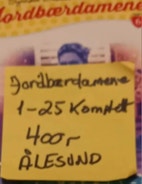 Jordbærdamene
Jordbærdamene
1-25 Komplett
400,-
ÅLESUND